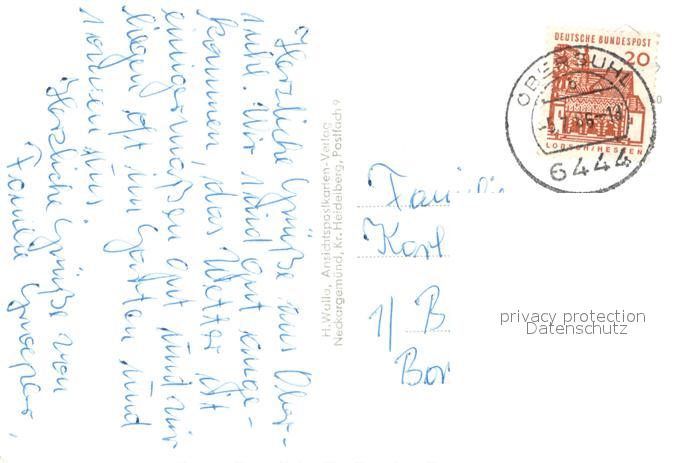 Herzliche Grüße aus Ober-
suhl. Wir sind gut ange-
kommen, das Wetter ist
einigermaßen gut und wir
liegen oft im Garten und
uns
Herzliche Grüße von
Familie
H. Walla, Ansichtspostkarten-Verlag
Neckargemünd, Kr. Heidelberg, Postfach 9
DEUTSCHE BUNDESPOST
20
LORSCH/HESSEN
OBERSUHL
6444
Familie
Karl
1/ B
Bor
privacy protection
Datenschutz